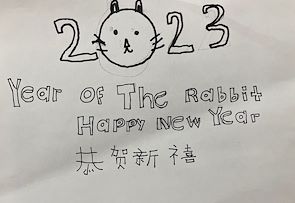 2023
Year Of The Rabbit
Happy New Year
恭贺新禧